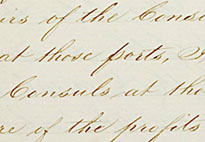 irs of the Consu
at those ports,
Consuls at the
re of the profits